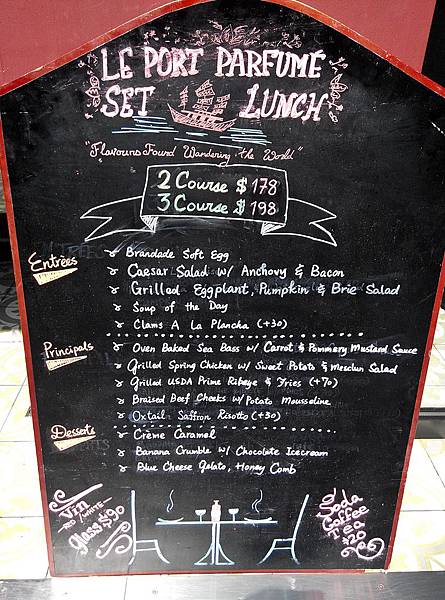 LE PORT PARFUMÉ
SET LUNCH
"Flavours Found Wandering the World"
2 Course $ 178
3 Course $ 198
Entrées
Brandade Soft Egg
Caesar Salad w/ Anchovy & Bacon
Grilled Eggplant, Pumpkin & Brie Salad
Soup of the Day
Clams A La Plancha (+30)
Principals
Oven Baked Sea Bass w/ Carrot & Pommery Mustard Sauce
Grilled Spring Chicken w/ Sweet Potato & Mesclun Salad
Grilled USDA Prime Ribeye & Fries (+70)
Braised Beef Cheeks w/ Potato Mousseline
Oxtail Saffron Risotto (+30)
Desserts
Crème Caramel
Banana Crumble w/ Chocolate Icecream
Blue Cheese Gelato, Honey Comb
Vin
RED / WHITE
Glass $90
Soda
Coffee
Tea
$20